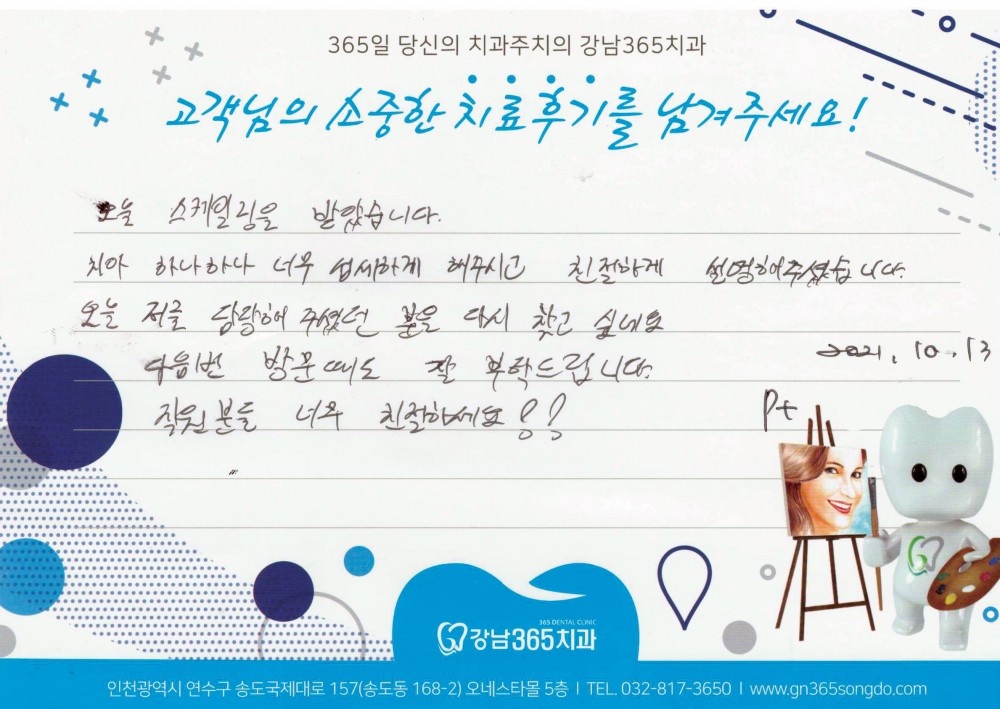 365일 당신의 치과주치의 강남365치과
고객님의 소중한 치료후기를 남겨주세요!
오늘 스케일링을 받았습니다.
치아 하나하나 너무 섬세하게 해주시고 친절하게 설명해주셨습니다.
오늘 저를 담당해 주셨던 분을 다시 찾고 싶네요
2021. 10. 13
다음번 방문때도 잘 부탁드립니다.
직원분들 너무 친절하세요!!
pt
365 DENTAL CLINIC
강남365치과
인천광역시 연수구 송도국제대로 157(송도동 168-2) 오네스타몰 5층 | TEL. 032-817-3650 | www.gn365songdo.com